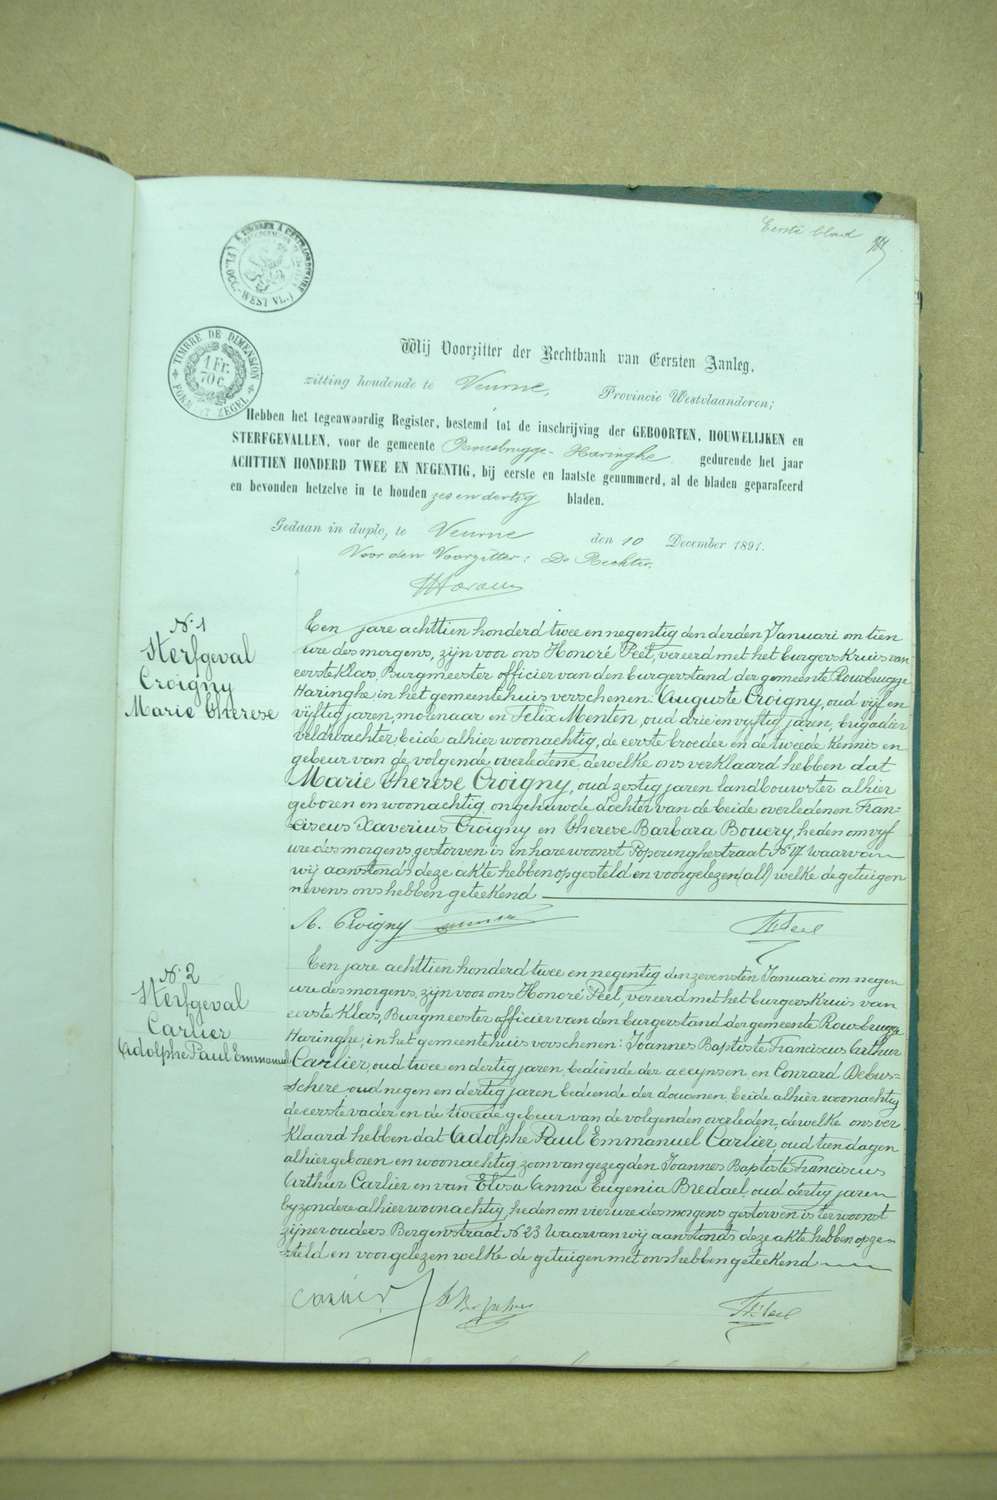 Eerste blad
TIMBRE DE DIMENSION
1 Fr. 70 c.
FORMAAT ZEGEL
(FL. OCC.-WEST VL.)
Wij Voorzitter der Rechtbank van Eersten Aanleg,
zitting houdende te Veurne, Provincie Westvlaanderen;
Hebben het tegenwoordig Register, bestemd tot de inschrijving der GEBOORTEN, HOUWELIJKEN en
STERFGEVALLEN, voor de gemeente Rousbrugge-Haringhe gedurende het jaar
ACHTTIEN HONDERD TWEE EN NEGENTIG, bij eerste en laatste genummerd, al de bladen geparafeerd
en bevonden hetzelve in te houden zes en dertig bladen.
Gedaan in duplo, te Veurne den 10 December 1891.
Voor den Voorzitter: De Rechter,
N.1
Sterfgeval
Croigny
Marie Therese
Ten jare achttien honderd twee en negentig den derden Januari om tien
ure des morgens, zijn voor ons Honoré Peel, vereerd met het burgers Kruis van
eerste Klas, Burgmeester officier van den burgerstand der gemeente Rousbrugge
Haringhe, in het gemeentehuis verschenen: Auguste Croigny, oud vijf en
vijftig jaren, molenaar en Felix Monten, oud drie en vijftig jaren, brigadier
veldwachter, beide alhier woonachtig, de eerste broeder en de tweede kennis en
gebeur van de volgende overledene, dewelke ons verklaard hebben dat
Marie Therese Croigny, oud zestig jaren landbouwster alhier
geboren en woonachtig ongehuwde dochter van de beide overledenen Fran-
ciscus Xaverius Croigny en Therese Barbara Bouery, heden om vijf
ure des morgens gestorven is in hare woonst Poperinghestraat N° 17 Waarvan
wij aanstonds deze akte hebben opgesteld en voorgelezen (al) welke de getuigen
nevens ons hebben geteekend
A. Croigny H. Peel
N.2
Sterfgeval
Carlier
Adolphe Paul Emmanuel
Ten jare achttien honderd twee en negentig den zevensten Januari om negen
ure des morgens, zijn voor ons Honoré Peel, vereerd met het burgers Kruis van
eerste Klas, Burgmeester officier van den burgerstand der gemeente Rousbrugge
Haringhe, in het gemeentehuis verschenen: Joannes Baptiste Franciscus Arthur
Carlier, oud twee en dertig jaren, bediende der accynsen en Conrard Debus-
schere oud negen en dertig jaren bediende der douanen beide alhier woonachtig
de eerste vader en de tweede gebeur van de volgenden overleden, dewelke ons ver
klaard hebben dat Adolphe Paul Emmanuel Carlier, oud tien dagen
alhier geboren en woonachtig zoon van gezegden Joannes Baptiste Franciscus
Arthur Carlier en van Elisa Anna Eugenia Bredael, oud dertig jaren
byzondere alhier woonachtig, heden om vier ure des morgens gestorven is ter woonst
zijner ouders Bergenstraat N° 23 Waarvan wij aanstonds deze akte hebben opge-
steld en voorgelezen welke de getuigen met ons hebben geteekend
Carlier H. Peel